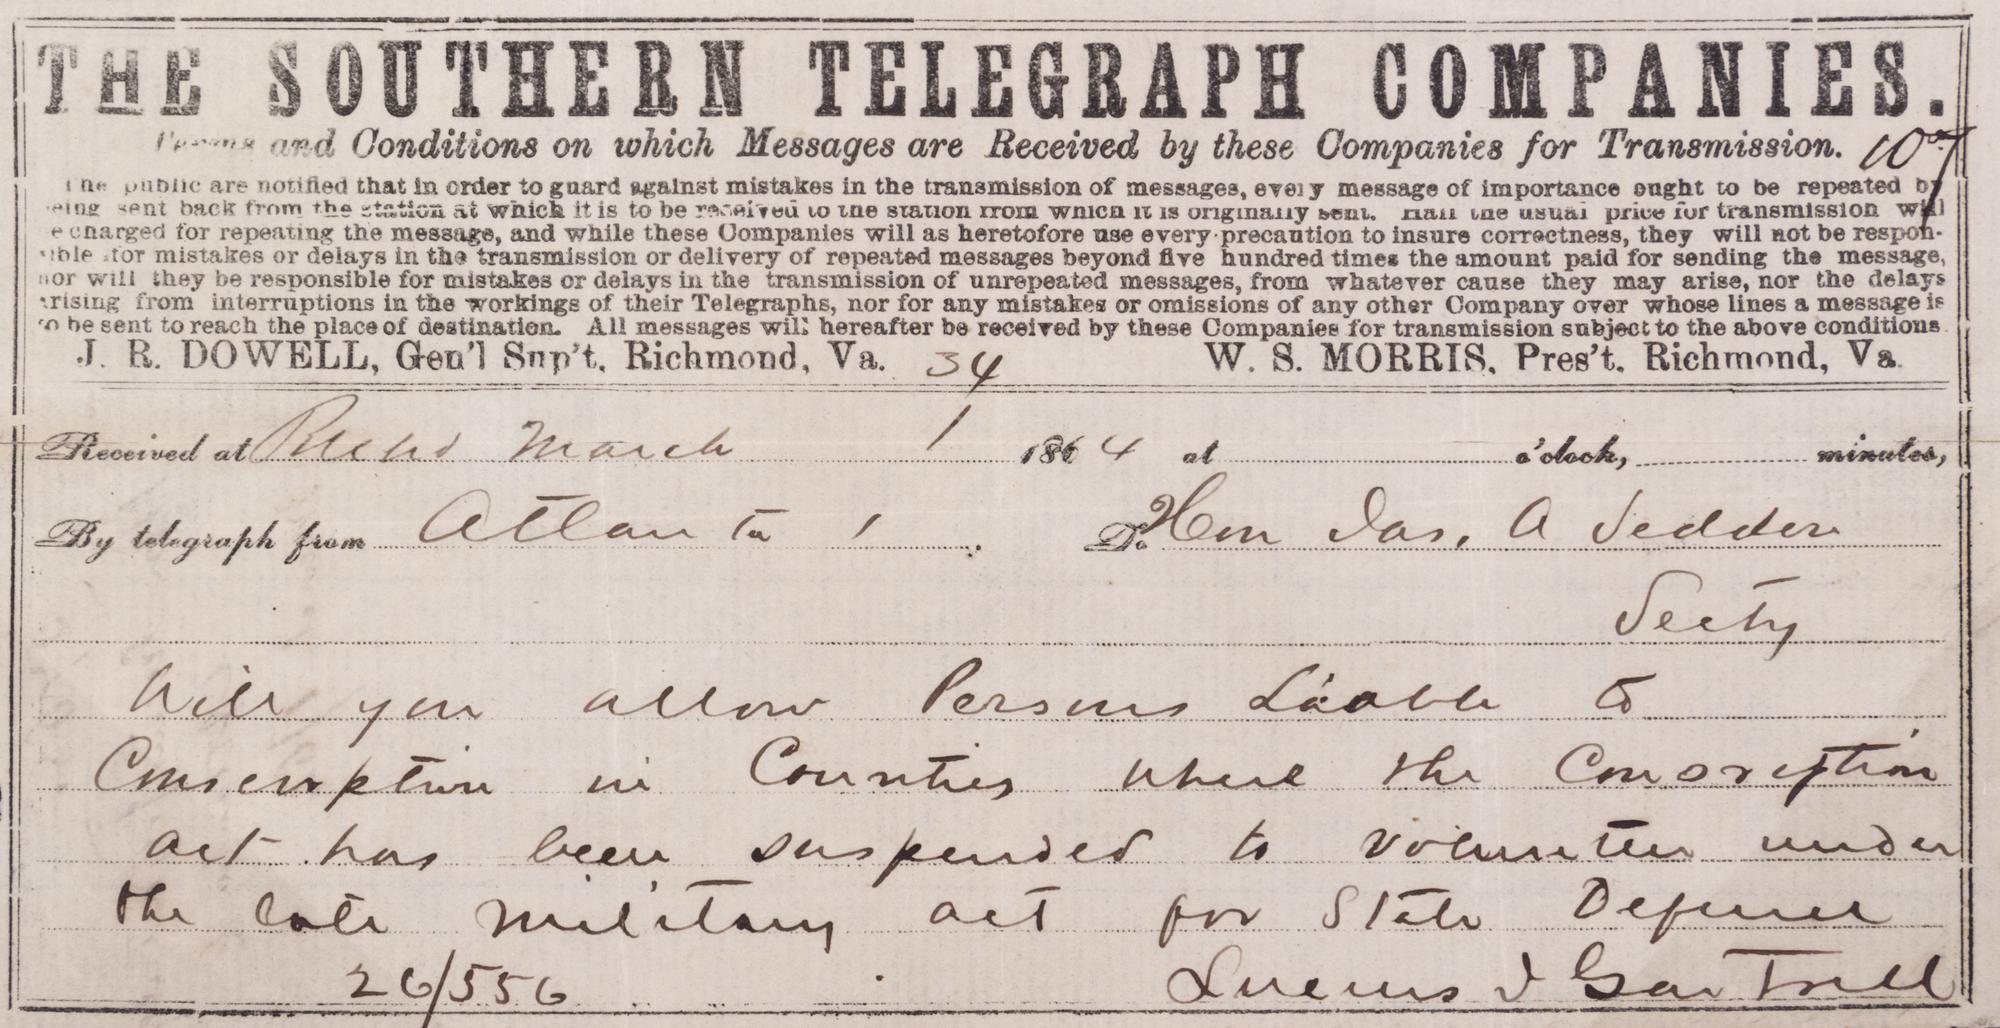 THE SOUTHERN TELEGRAPH COMPANIES.
Terms and Conditions on which Messages are Received by these Companies for Transmission.
The public are notified that in order to guard against mistakes in the transmission of messages, every message of importance ought to be repeated by
eing sent back from the station at which it is to be received to the station from which it is originally sent. Half the usual price for transmission will
e charged for repeating the message, and while these Companies will as heretofore use every precaution to insure correctness, they will not be respon-
ible for mistakes or delays in the transmission or delivery of repeated messages beyond five hundred times the amount paid for sending the message,
nor will they be responsible for mistakes or delays in the transmission of unrepeated messages, from whatever cause they may arise, nor the delays
arising from interruptions in the workings of their Telegraphs, nor for any mistakes or omissions of any other Company over whose lines a message is
to be sent to reach the place of destination. All messages will hereafter be received by these Companies for transmission subject to the above conditions.
J. R. DOWELL, Gen'l Sup't, Richmond, Va. 34 W. S. MORRIS, Pres't, Richmond, Va.
Received at March 1 1864 at o'clock, minutes,
By telegraph from Atlanta 1 To Hon Jas. A Seddon
Secty
Will you allow Persons Liable to
Conscription in Counties where the Conscription
act has been suspended to volunteer under
the late military act for State Defence
26/556 Lucius J Gartrell